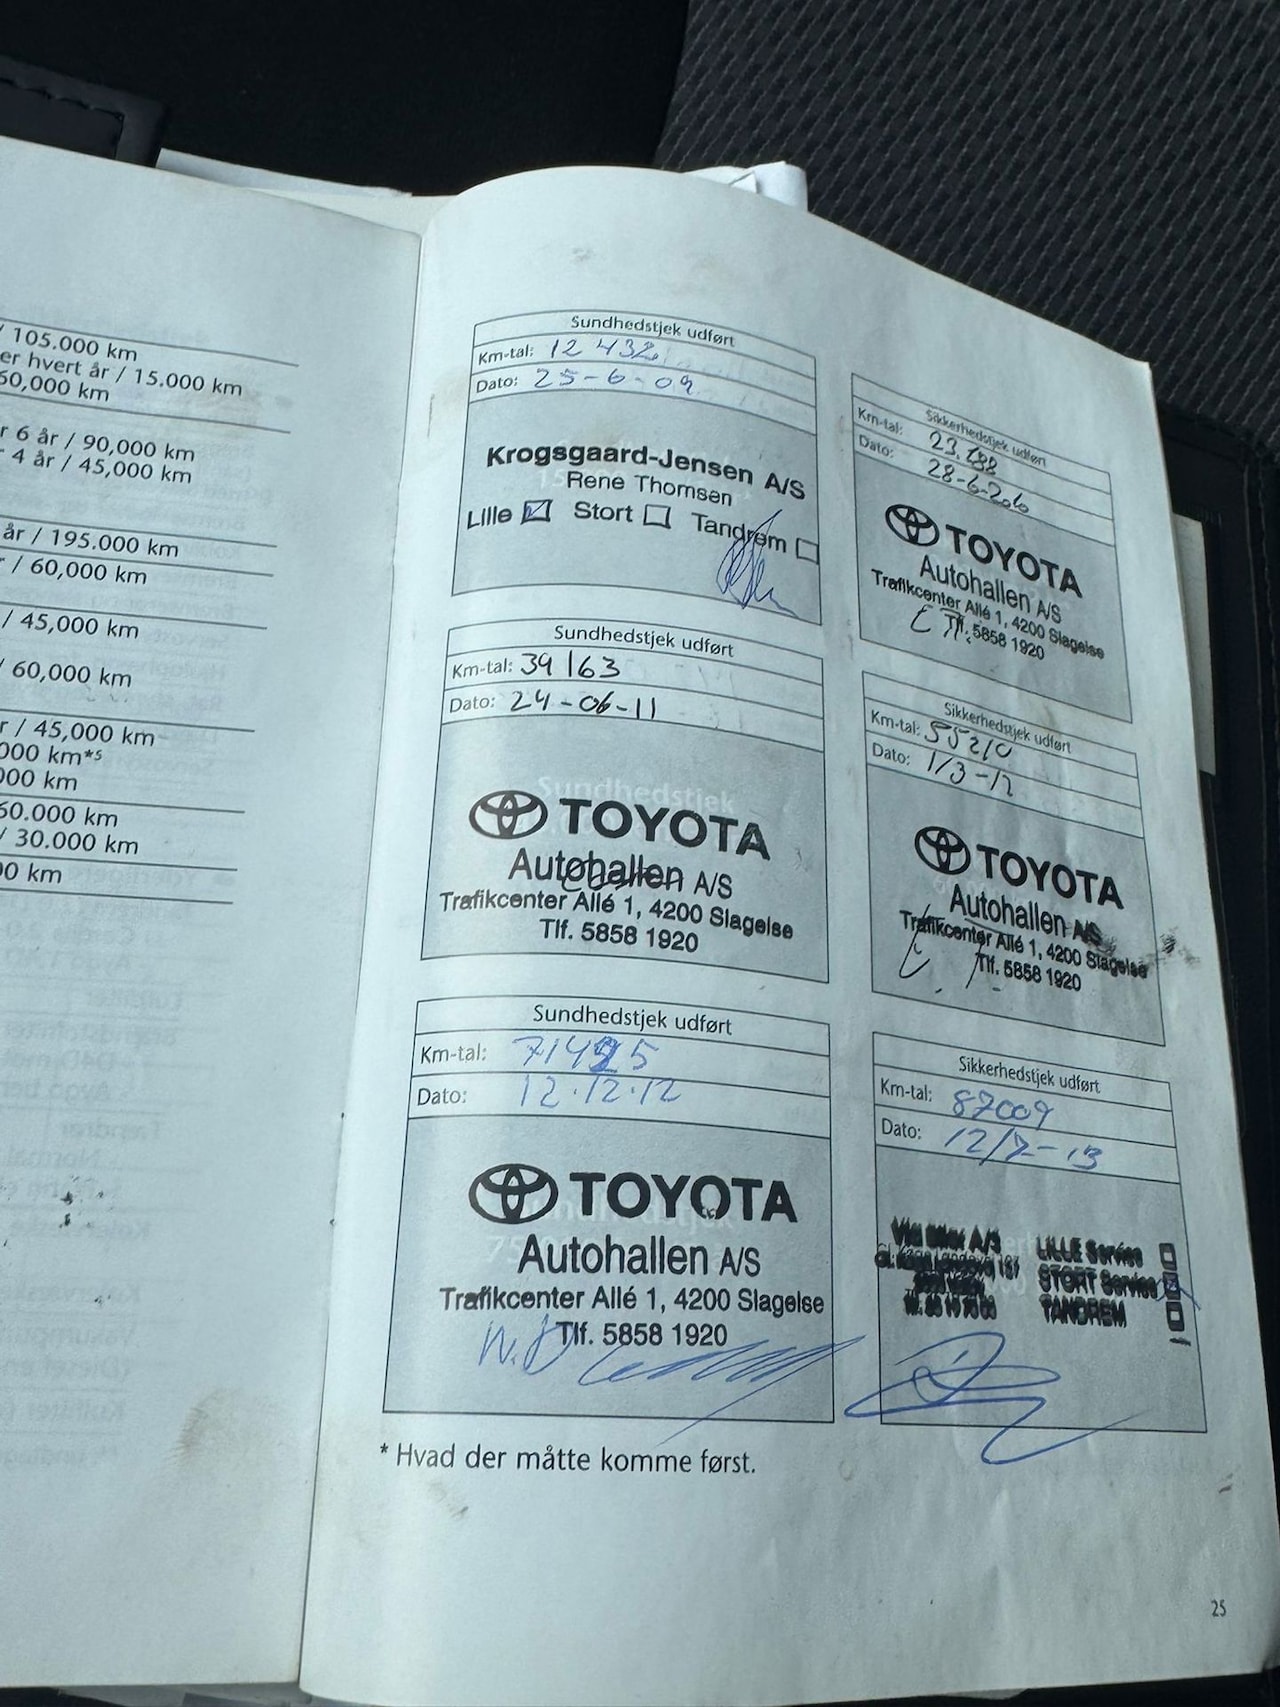 / 105.000 km
er hvert år / 15.000 km
60,000 km
r 6 år / 90,000 km
r 4 år / 45,000 km
år / 195.000 km
r / 60,000 km
/ 45,000 km
/ 60,000 km
r / 45,000 km
000 km*5
000 km
60.000 km
/ 30.000 km
00 km
Sundhedstjek udført
Km-tal: 12 432
Dato: 25-6-09
Krogsgaard-Jensen A/S
Rene Thomsen
Lille Stort Tandrem
Sikkerhedstjek udført
Km-tal: 23.188
Dato: 28-6-2010
TOYOTA
Autohallen A/S
Trafikcenter Allé 1, 4200 Slagelse
Tlf. 5858 1920
Sundhedstjek udført
Km-tal: 39163
Dato: 24-06-11
TOYOTA
Autohallen A/S
Trafikcenter Allé 1, 4200 Slagelse
Tlf. 5858 1920
Sikkerhedstjek udført
Km-tal: 55210
Dato: 1/3-12
TOYOTA
Autohallen A/S
Trafikcenter Allé 1, 4200 Slagelse
Tlf. 5858 1920
Sundhedstjek udført
Km-tal:
Dato: 12.12.12
TOYOTA
Autohallen A/S
Trafikcenter Allé 1, 4200 Slagelse
Tlf. 5858 1920
Sikkerhedstjek udført
Km-tal: 87009
Dato: 12/7-13
LILLE Service
STORT Service
TANDREM
* Hvad der måtte komme først.
25